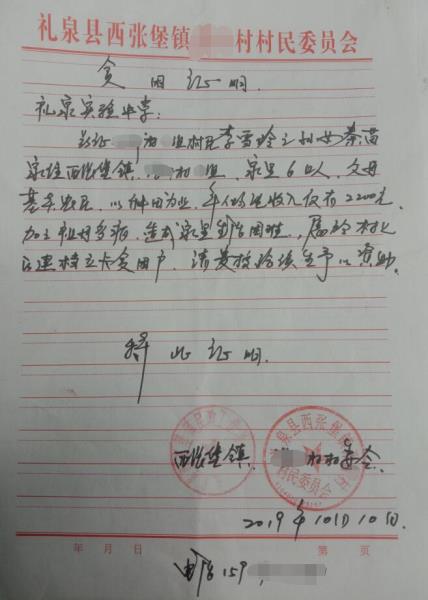 礼泉县西张堡镇 村村民委员会
贫困证明
礼泉实验中学：
兹证 为 组村民李雪玲之孙女秦苗
家住西张堡镇 村 组，家里6口人，父母
基本农民，以种田为业，年人均纯收入仅有2200元，
加上祖母多病，造成家里生活困难，属于村上
已建档立卡贫困户，请贵校给该生予以资助。
特此证明。
西张堡镇 村村委会
泉县西张堡
村民委员会
2019年10月10日.
年 月 日 第 页
电话159